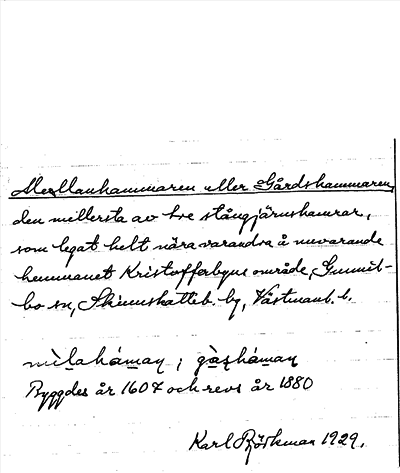 Mellanhammaren eller Gårdshammaren,
den mellersta av tre stångjärnshamrar,
som legat helt nära varandra å nuvarande
hemmanet Kristofferbyns område, Gunnil-
bo sn, Skinnskatteb. hg, Västmanl. l.
mìlahámaṉ ; gàṣhámaṉ
Byggdes år 1607 och revs år 1880
Karl Björkman 1929.